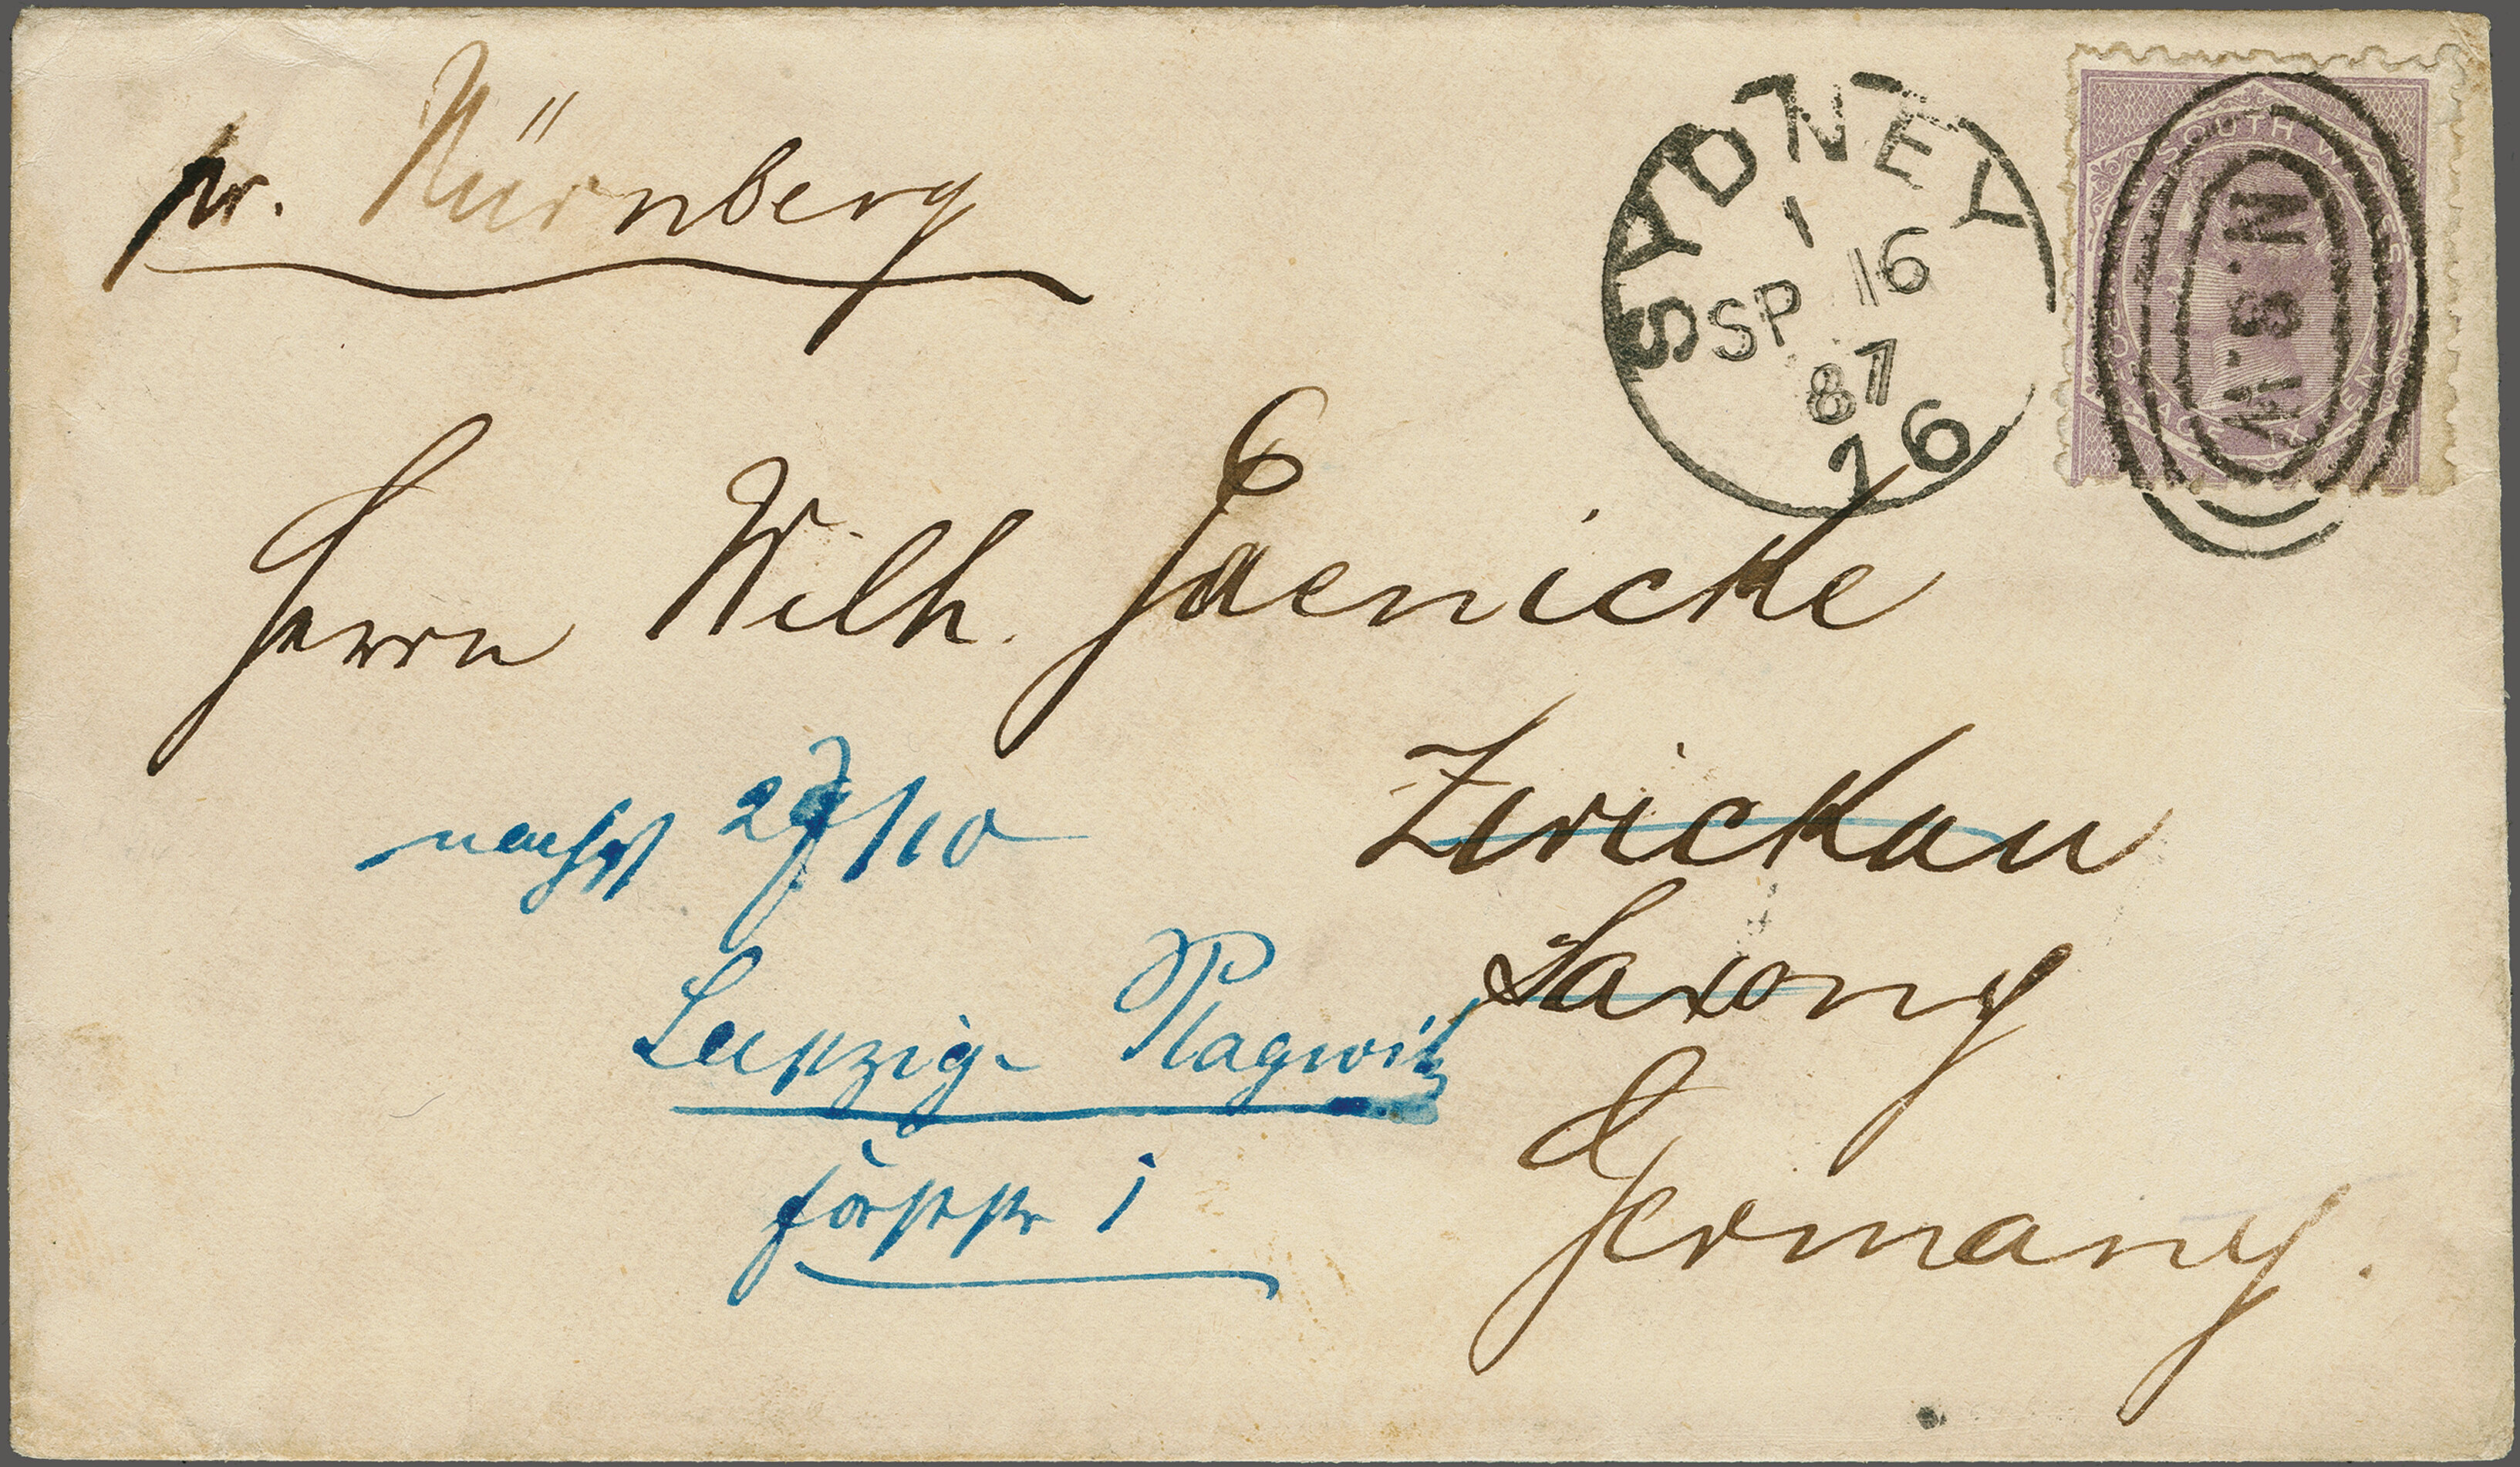 pr. Nürnberg
SYDNEY
1
SP 16
87
76
SOUTH WALES
POSTAGE SIX PENCE
N.S.W
Herrn Wilh. Jaenicke
Zwickau
Saxony
Germany.
27/10
Leipzig-Plagwitz
1